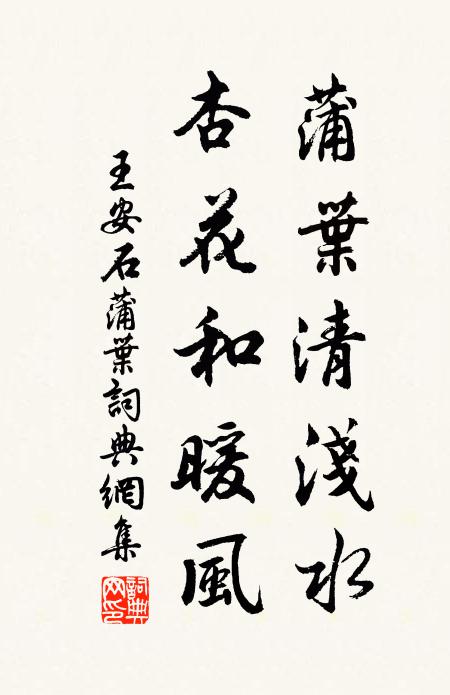 蒲葉清淺水
杏花和暖風
王安石蒲葉詞典網集
詞典網印